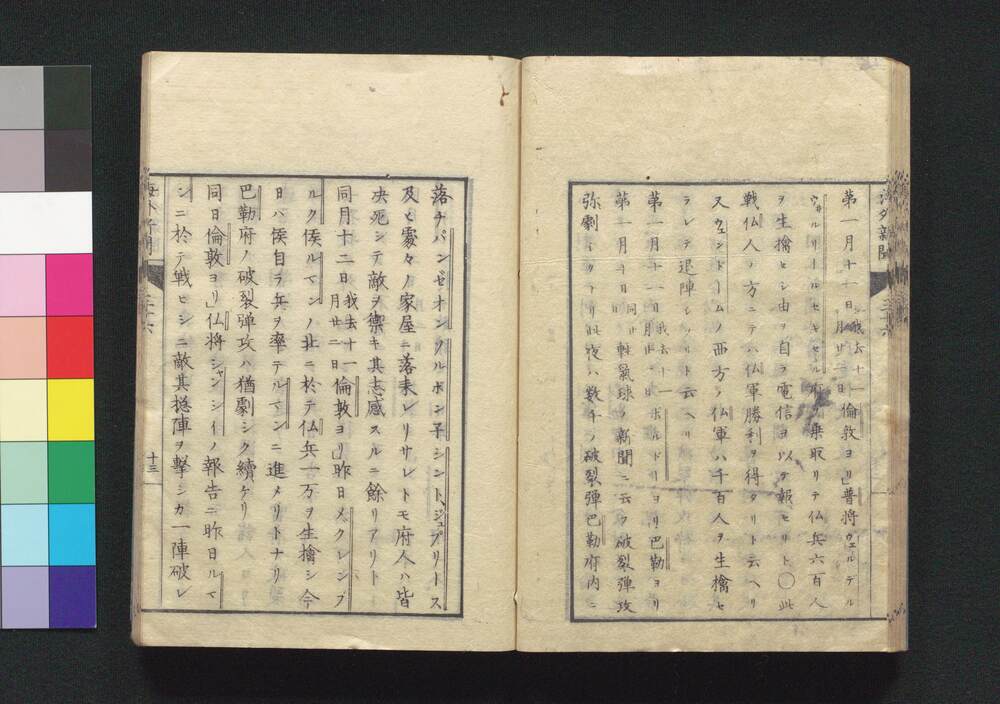 第一月十一日我去十一月廿一日倫敦ヨリ」普将ウェルデル
ウルリールセキセル府ヲ乗取リテ仏兵六百人
ヲ生擒セシ由ヲ自ラ電信ヨ以テ報セリト〇此
戦仏人ノ方ニテハ仏軍勝利ヲ得タリト云ヘリ
又ウェンドームノ西方ノ仏軍ハ千百人ヲ生擒セ
ラレテ退陣シタリト云ヘリ
第一月十一日我去十一月廿一日ボルドリヨリ巴勒ヨリ
第一月十日同廿日軽氣球ノ新聞ニ云ク破裂弾攻
弥劇シク 此夜ハ数千ノ破裂弾巴勒府内ニ
落チパンゼオンソルボン子シント、ジュプリトス
及ヒ處々ノ家屋ニ落来レリサレトモ府人ハ皆
决死シテ敵ヲ禦キ其志感スルニ餘リアリト
同月十二日我去十一月廿二日倫敦ヨリ」昨日メクレンブ
ルク侯ルマンノ北ニ於テ仏兵一万ヲ生擒シ今
日ハ侯自ラ兵ヲ率テルマンニ進メリトナリ
巴勒府ノ破裂弾攻ハ猶劇シク續ケリ
同日倫敦ヨリ」仏将シャンシイノ報告ニ昨日ルマ
ンニ於テ戦ヒシニ敵其
陣ヲ撃シカ一陣破レ
海外新聞
三十六
十三